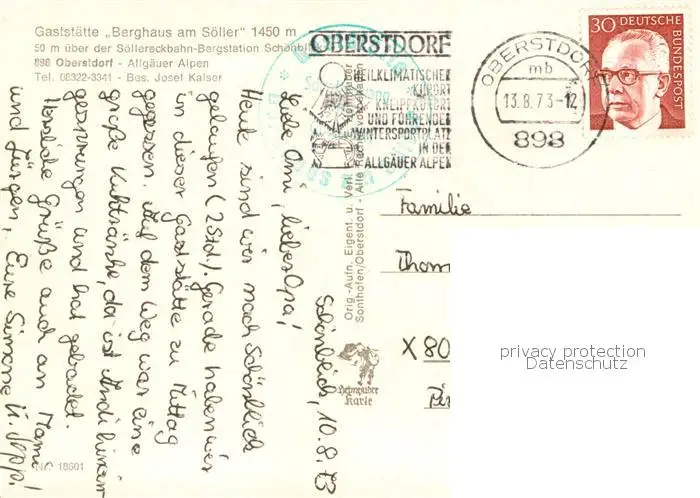 Gaststätte „Berghaus am Söller" 1450 m
50 m über der Söllereckbahn-Bergstation Schönblick
898 Oberstdorf - Allgäuer Alpen
Tel. 08322-3341 - Bes. Josef Kaiser
Schönblick, 10.8.73
Liebe Omi, lieber Opa!
Heute sind wir nach Schönblick
gelaufen (2 Std). Gerade haben wir
in dieser Gaststätte zu Mittag
gegessen. Auf dem Weg war eine
große Kuhtränke, da ist Andi hinein
gesprungen und hat gebadet.
Herzliche Grüße auch an Mami
und Jürgen, Eure Simone u. Sepp!
Nr. 18601
Orig.-Aufn. Eigent. u. Verl.
Sonthofen/Oberstdorf - Alle Rechte vorbehalten
Karte
OBERSTDORF
HEILKLIMATISCHER
KURORT
KNEIPPKURORT
UND FÜHRENDER
WINTERSPORTPLATZ
IN DEN
ALLGÄUER ALPEN
OBERSTDORF
mb
13.8.73-12
898
30 DEUTSCHE
BUNDESPOST
Familie
Thom
X 80
privacy protection
Datenschutz